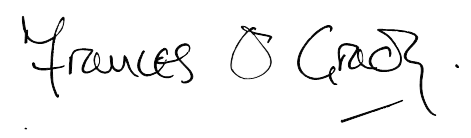 Frances O'Grady